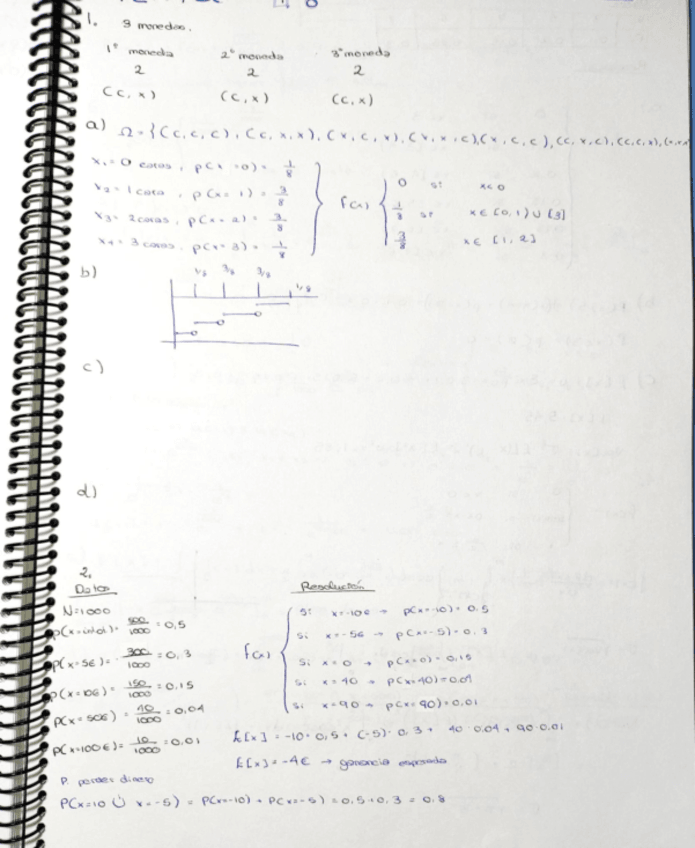 1. 3 monedas.
1º moneda 2º moneda 3º moneda
2 2 2
(C, x) (C, x) (C, x)
a) Ω = {(C, C, C), (C, x, x), (x, C, x), (x, x, C), (x, C, C), (C, x, C), (C, C, x), (x, x, x
x₁ = 0 caras, p(x = 0) = 1/8
x₂ = 1 cara, p(x = 1) = 3/8
x₃ = 2 caras, p(x = 2) = 3/8
x₄ = 3 caras, p(x = 3) = 1/8
f(x)
0 si x<0
1/8 si x ∈ [0, 1) ∪ [3]
3/8 x ∈ [1, 2]
b)
1/8 3/8 3/8 1/8
c)
d)
2.
Datos
N=1000
p(x= )= 500/1000 = 0,5
p(x=5€)= 300/1000 = 0,3
p(x=10€)= 150/1000 = 0,15
p(x=50€) = 40/1000 = 0,04
p(x=100€)= 10/1000 = 0,01
Resolución
f(x)
Si x=-10€ → p(x=-10)= 0,5
Si x=-5€ → p(x=-5)=0,3
Si x=0 → p(x=0)=0,15
Si x=40 → p(x=40)=0,04
Si x=90 → p(x=90)=0,01
E[x] = -10·0,5 + (-5)·0,3 + 40·0,04 + 90·0,01
E[x] = -4€ → ganancia esperada
P. perder dinero
P(x=10 ∪ x=-5) = P(x=-10) + P(x=-5) = 0,5+0,3 = 0,8